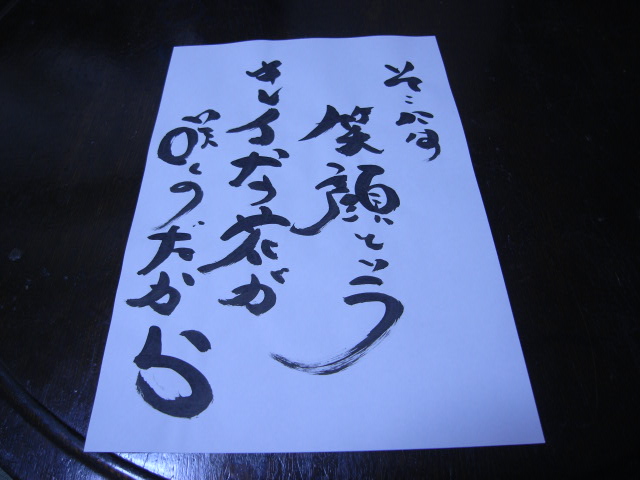 そこには
笑顔という
キレイな花が
咲くのだから